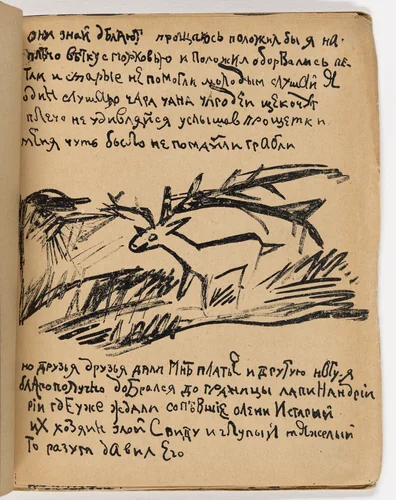 они знай дѣлают прощаюсь положил бы я на
плечо вѣтку с морковью и положил оборвались пе
там и старые не помогли молодым слушай я
один слушаю чара чана чародеи щекочат
плечо не удивляйся услышов про щетки
меня чуть было не помяли грабли
но друзья друзья дали мнѣ платье и другую ногу я
благополучно добрался до границы лапи
рій где уже ждали сопѣвшие олени и старый
их хозяин злой с виду и глупый тяжелый
то разум давил его